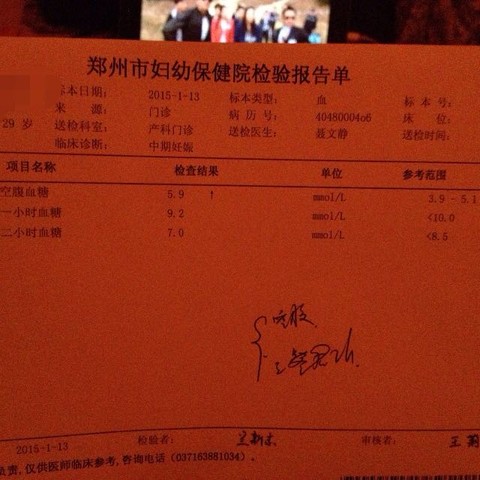 郑州市妇幼保健院检验报告单
本日期: 2015-1-13 标本类型: 血 标 本 号:
来 源: 门诊 病 历 号: 4048000406 床 位:
29 岁 送检科室: 产科门诊 送检医生: 聂文静 送检时间:
临床诊断: 中期妊娠
项目名称 检查结果 单位 参考范围
空腹血糖 5.9 ↑ mmol/L 3.9 - 5.1
一小时血糖 9.2 mmol/L <10.0
二小时血糖 7.0 mmol/L <8.5
空腹
2015-1-13 检验者: 审核者: 王
负责,仅供医师临床参考,咨询电话(037163881034)。